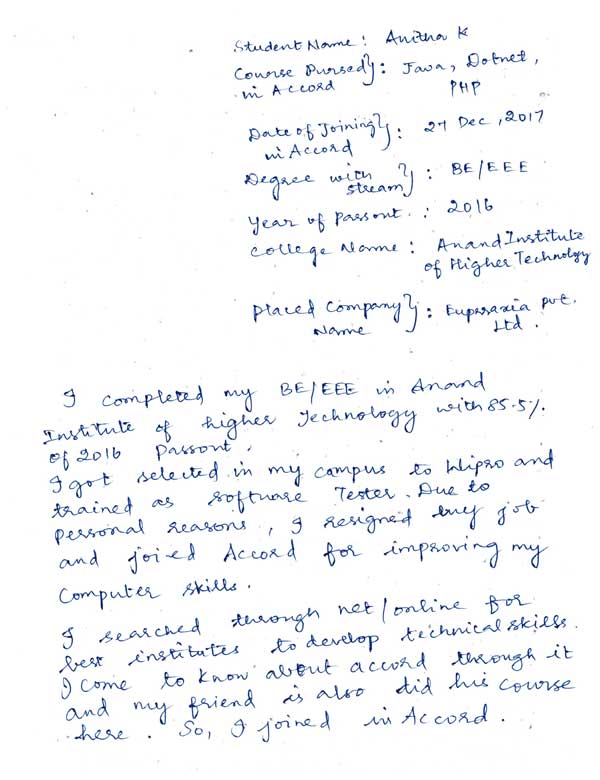 Student Name : Anitha K
Course Pursed} : Java, Dotnet,
in Accord PHP
Date of Joining} : 27 Dec, 2017
in Accord
Degree with } : BE/EEE
stream
Year of Passout : 2016
College Name : Anand Institute
of Higher Technology
Placed Company} : Eupraxia Pvt.
Name Ltd.
I completed my BE/EEE in Anand
Institute of higher Technology with 85.5%.
of 2016 Passout.
I got selected in my campus to Wipro and
trained as Software Tester. Due to
Personal reasons, I resigned my job
and joined Accord for improving my
Computer skills.
I searched through net/online for
best institutes to develop technical skills.
I come to know about accord through it
and my friend is also did his course
here. So, I joined in Accord.